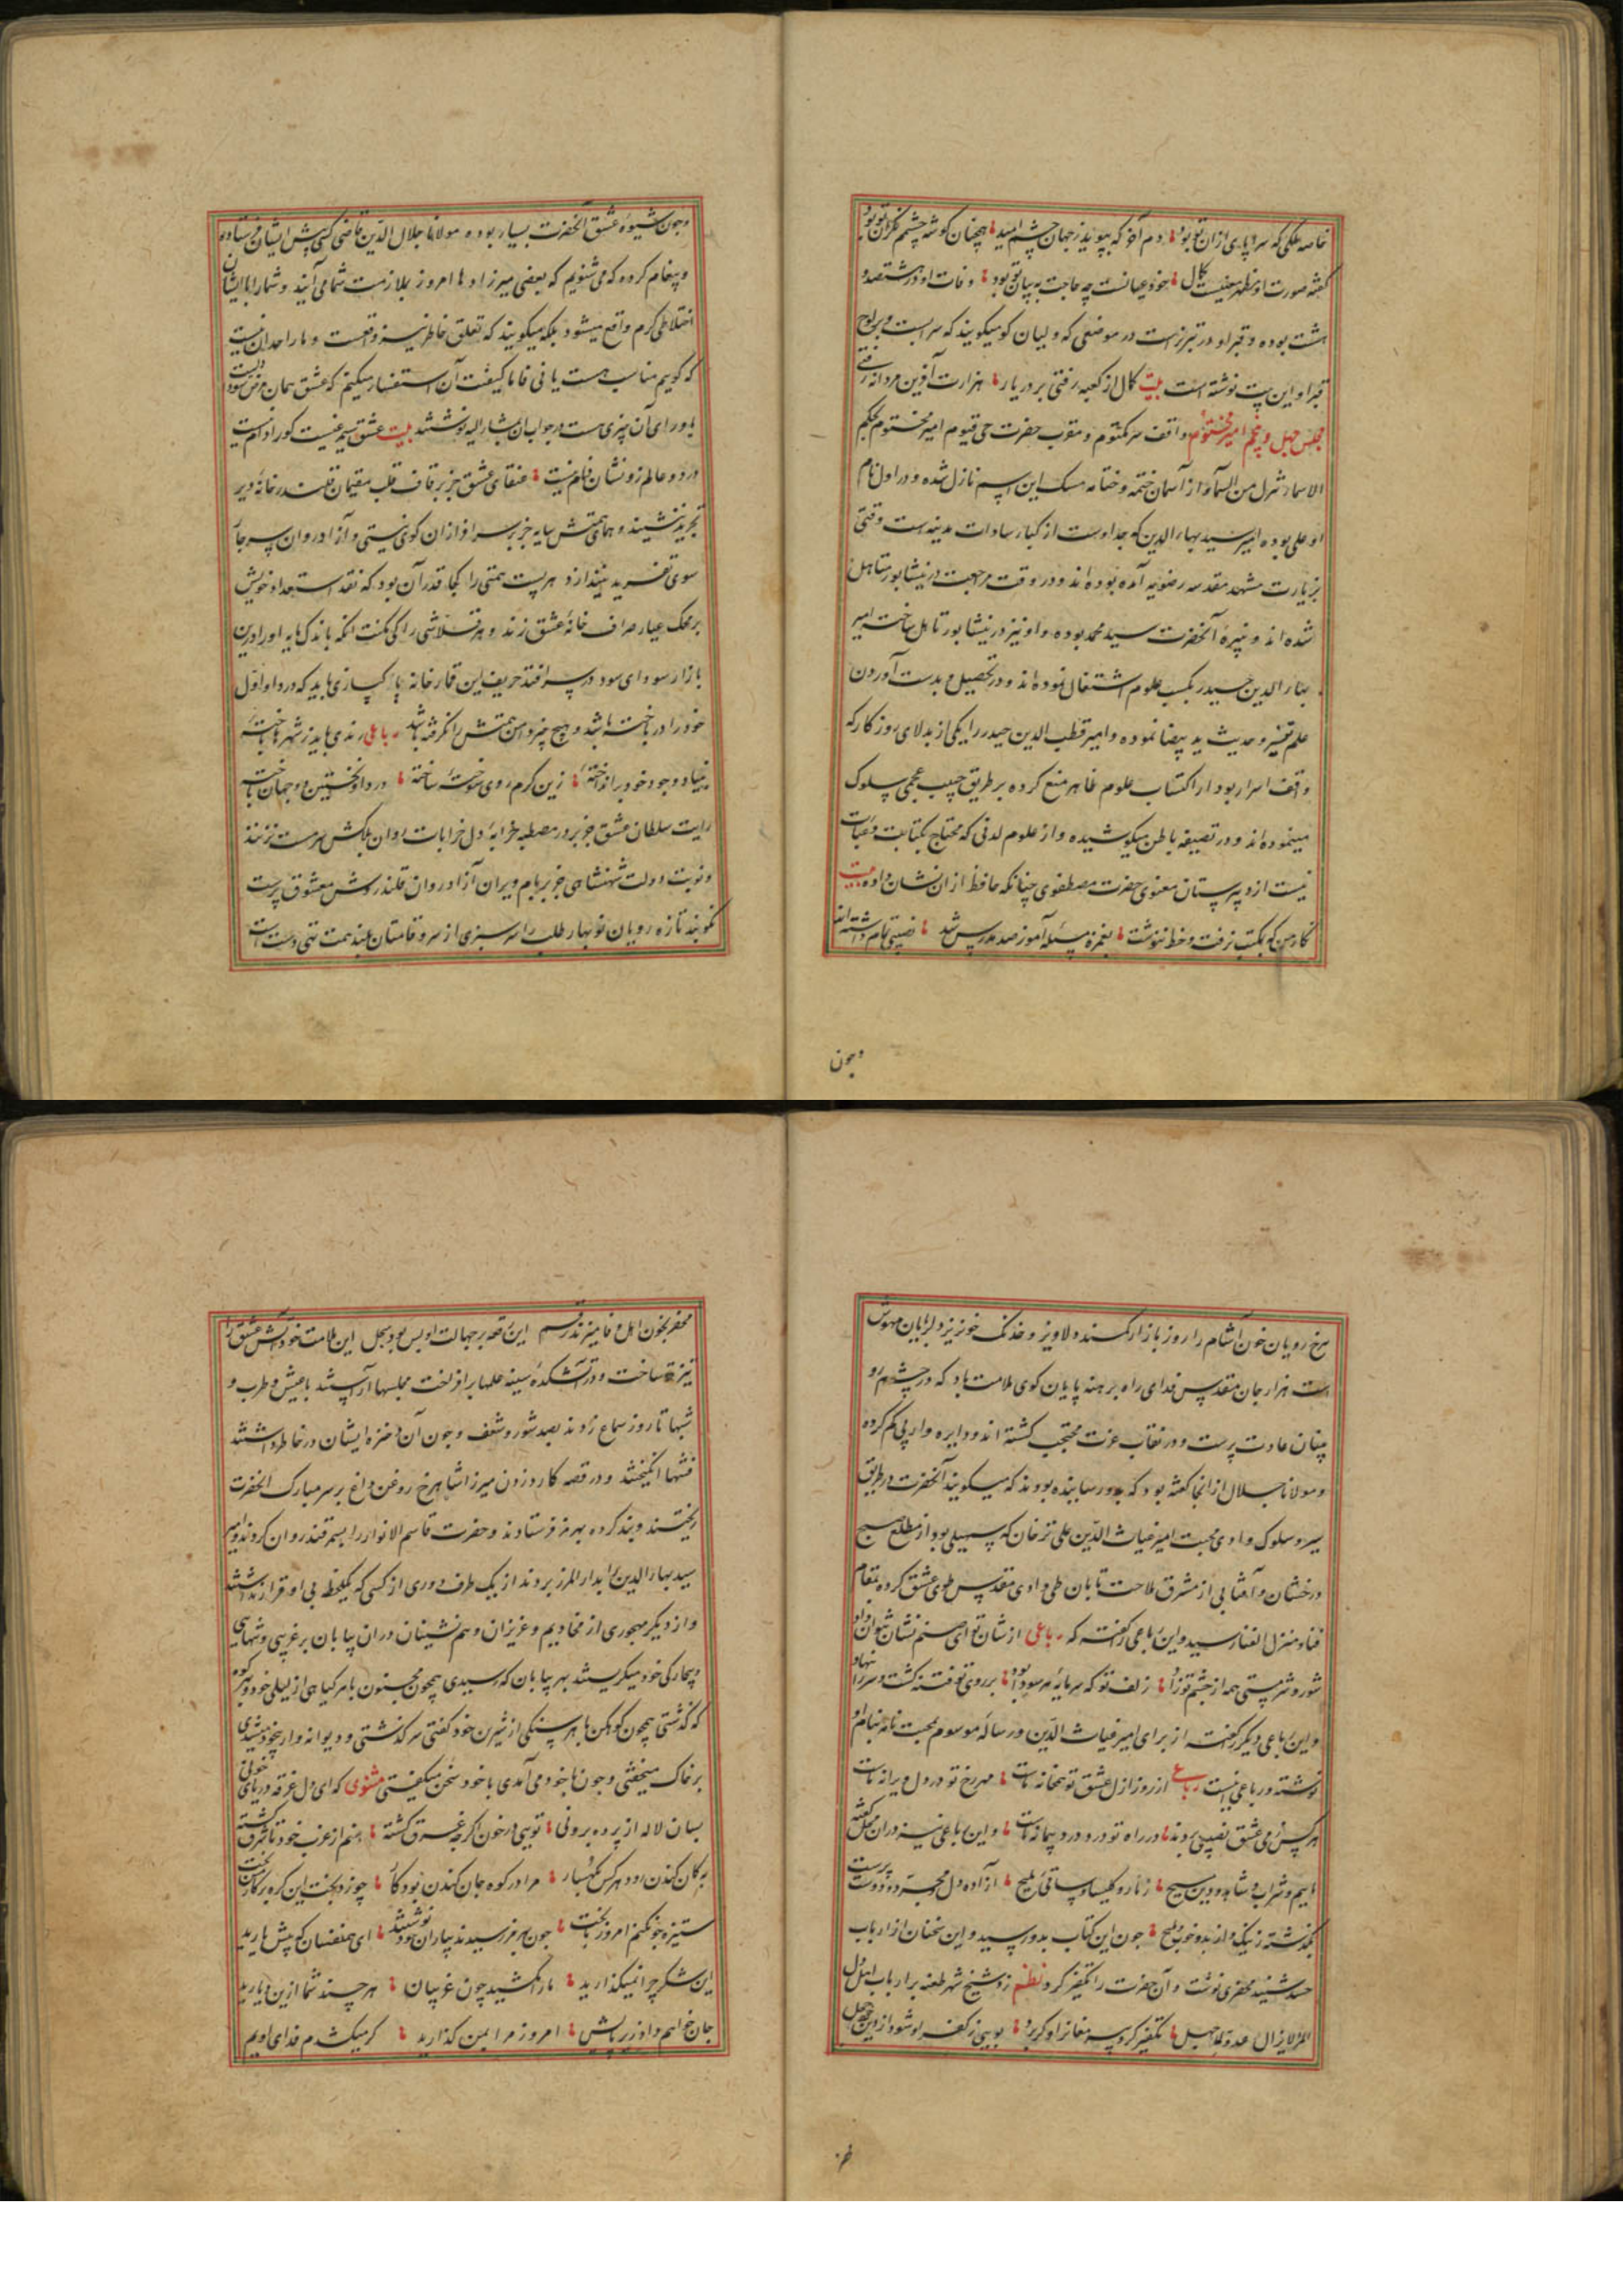 خاصه ملکی که سراپای از ان تو بود دم آخر که بپوید ز جهان چشم امید همچنان گوشه چشم نگران تو بود
گفته صورت او مظهر معنیست کمال خود عیانست چه حاجت به بیان تو بود وفات او در هشتصد و
هشت بوده و قبر او در تبریزست در موضعی که ولیان کو میگویند که سر است و بر لوح
قبر او این بیت نوشته است بیت کمال از کعبه رفتی بر در یار هزارت آفرین مردانه رفتی
مجلس چهل و پنجم امیر مختوم واقف سر مکتوم و مقرب حضرت حی قیوم امیر مختوم بحکم
الاسماء تنزل من السماء از آسمان ختمه وختامه مسک این اسم نازل شده و در اول نام
او علی بوده امیر سید بهاء الدین که جد اوست از کبار سادات مدینه است وقتی
بزیارت مشهد مقدسه رضویه آمده بوده اند و در وقت مراجعت در نیشابور متاهل
شده اند و نبیره آنحضرت سید محمد بوده و او نیز در نیشابور تاهل ساخت امیر
بهاء الدین حیدر بکسب علوم اشتغال نموده اند و در تحصیل و بدست آوردن
علم تفسیر و حدیث ید بیضا نموده و امیر قطب الدین حیدر را یکی از بدلای روزگار که
واقف اسرار بود از اکتساب علوم ظاهر منع کرده بر طریق حبیب عجمی سلوک
مینموده اند و در تصفیه باطن میکوشیده و از علوم لدنی که محتاج بکتابت و عبارت
نیست از دبیرستان معنوی حضرت مصطفوی چنانکه حافظ از ان نشان داده بیت
نگار من که بمکتب نرفت و خط ننوشت بغمزه مسئله آموز صد مدرس شد نصیبی تمام داشته اند
وچون
وچون شیوه عشق آنحضرت بسیار بوده مولانا جلال الدین قاضی کسی پیش ایشان فرستاده
و پیغام کرده که می شنویم که بعضی میرزاده ها امروز بملازمت شما می آیند و شما را با ایشان
اختلاطی گرم واقع میشود بلکه میگویند که تعلق خاطر نیز واقعست و ما را حد ان نیست
که گوییم مناسب هست یا نی فاما کیفیت آن استفسار میکنیم که عشق همان مرض سوداست
یا ورای آن چیزی هست در جواب ان مشار الیه نوشتند بیت عشق سیمرغیست کورا دام نیست
در دو عالم زو نشان و نام نیست عنقای عشق جز بر قاف قلب مقیمان قلندر خانه دیر
تجرید ننشیند و همای همتش سایه جز بر سرافرازان کوی نیستی و آزادروان سرحد
سوی تفرید نیندازد هر پست همتی را کجا قدر آن بود که نقد استعداد خویش
بر محک عیار صراف خانه عشق زند و هر قلاشی را کی مکنت انکه باندک مایه او را درین
بازار سودای سود در سر افتد حریف این قمارخانه پاکبازی باید که در داو اول
خود را در باخته باشد و هیچ چیز دامن همتش را نگرفته باشد رباعی رندی باید ز شهرها تاخته
بنیاد وجود خود برانداخته زین گرم روی سوخته ساخته در داو نخستین دو جهان باخته
رایت سلطان عشق جز بر در مصطبه خرابه دل خراباتیان بلاکش سرمست نزنند
و نوبت دولت شهنشاهی جز بر بام ویران آزادروان قلندروش معشوق پرست
نکوبند تازه رویان نوبهار طلب را سرسبزی از سرو قامتان بلند همت تهی دست است
سرخ رویان خون آشام را روز بازار کمند دلاویز و خدنگ خونریز دلربایان مهوش
است هزار جان مقدس فدای راه برهنه پایان کوی ملامت باد که در چشم رو
بینان عادت پرست و در نقاب عزت محتجب گشته اند و دایره وار پی گم کرده
و مولانا جلال از انجا گفته بود که بدو رسانیده بودند که میگویند آنحضرت در طریق
سیر و سلوک وادی محبت امیر غیاث الدین علی ترخان که سهیلی بود از مطلع صبح
درخشان و آفتابی از مشرق ملاحت تابان طی وادی مقدس طوی عشق کرده بمقام
فنا و منزل الغنا رسید و این رباعی را گفته که رباعی از شان تو ای صنم نشان نتوان داد
شور و شر و مستی همه از چشم تو زاد زلف تو که سرمایه هر سودا بود بر روی تو فتنه گشت و سر را بنهاد
و این رباعی دیگر گفته از برای امیر غیاث الدین و رساله موسوم بمحبت نامه بنام او
نوشته و رباعی اینست رباعی از روز ازل عشق تو همخانه ماست مهر رخ تو در دل ویرانه ماست
هر کس ز می عشق نصیبی بردند در راه تو درد درد پیمانه ماست و این رباعی نیز در ان محل گفته
ماییم و شراب و شاهد و دین مسیح زنار و کلیسا و ساقی ملیح آزاده دل مجرد و دوست پرست
بگذشته ز نیک و از بد و خوب و قبیح چون این کتاب بدو رسید و این سخنان از ارباب
حسد شنید محضری نوشت و آن حضرت را تکفیر کرد نظم زد شیخ شهر طعنه بر ارباب اهل دل
المرء لا یزال عدوا لما جهل تکفیر کرد پیر مغان را و گر برد بویی ز کفر او شود از دین خود خجل
محضر بخون اهل وفا میزند رقم این قصه بر جهالت او بس بود سجل این ملامت خود آتش عشق را
تیزتر ساخت و در آتشکده سینه علمها برافراخت مجلسها آراستند با عیش و طرب و
شبها تا روز سماع زدند بصد شور و شغف و چون آن ذخیره ایشان در خاطر داشتند
فتنها انگیختند و در قصه کارد زدن میرزا شاهرخ روغن داغ بر سر مبارک آنحضرت
ریختند و بند کرده بهرمز فرستادند و حضرت قاسم الانوار را بسمرقند روان کردند و امیر
سید بهاء الدین را بدار المرز بردند از یک طرف دوری از کسی که یکلحظه بی او قرار نداشتند
و از دیگر مهجوری از مخادیم و عزیزان و هم نشینان در ان بیابان بر غریبی و تنهایی
و بیچارگی خود میگریستند بهر بیابان که رسیدی همچون مجنون با هر گیاهی از لیلی خود و بهر کوه
که گذشتی همچون کوهکن با هر سنگی از شیرین خود گفتی سرگذشتی و دیوانه وار بیخود میشدی
بر خاک میخفتی و چون با خود می آمدی با خود سخن میگفتی مثنوی که ای دل غرقه دریای خونی
بسان لاله از پرده برونی تویی در خون اگرچه غرق گشته منم از غرب خود تا شرق گشته
به کان کندن اود هر کس بکهسار مرا در کوه جان کندن بود کار چو زد بخت این گره بر کار سخت
ستیزه چون کنم امروز با بخت چون بهرمز رسیدند بیاران خود نوشتند ای همنفسان که پیش یارید
این شکر چرا نمیگذارید ما را مکشید چون غریبان هر چند شما ازین دیارید
جان خواهم داد زیر پایش امروز مرا بمن گذارید گر میکشدم فدای اویم